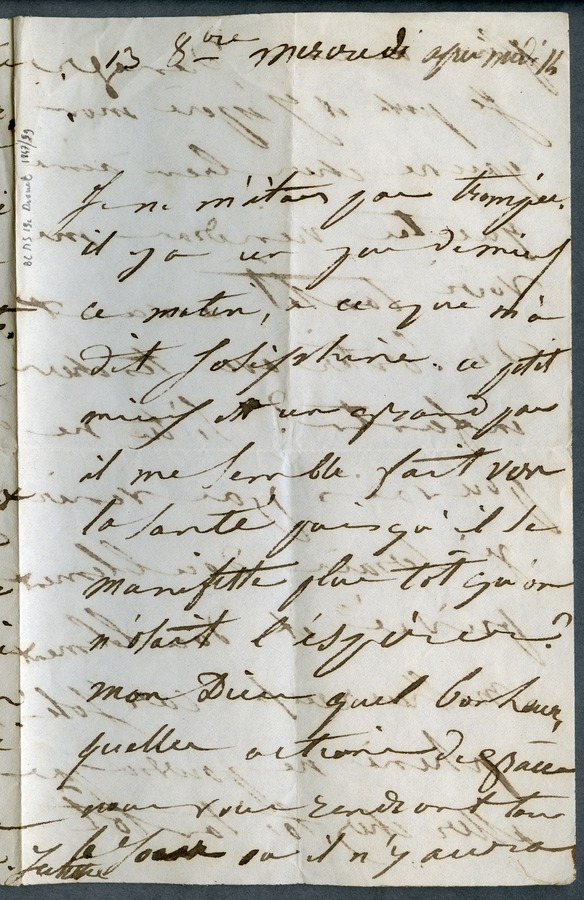 13 8bre mercredi après midi
Je ne m'étais pas trompée.
il y a un peu de mieux
ce matin, à ce que m'a
dit Joséphine. ce petit
mieux est un grand pas
il me semble fait vers
la santé puisqu'il se
manifeste plus tôt qu'on
n'osait l'espérer?
mon Dieu quel bonheur,
quelles actions de grâces
nous vous rendrons tous
le jour où il n'y aura
BC MS 19c Drouet 1847/99